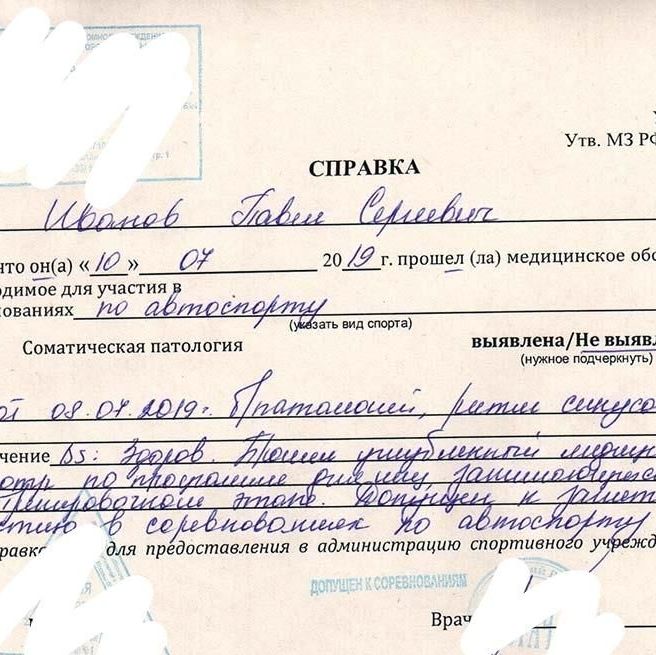 Утв. МЗ РФ
СПРАВКА
Иванов Павел Сергеевич
что он(а) «10» 07 2019 г. прошел (ла) медицинское обс
одимое для участия в
ованиях по автоспорту
(указать вид спорта)
Соматическая патология выявлена/Не выявл
(нужное подчеркнуть)
от 08.07.2019г. б/патологий, ритм синусо
чение Ds: Здоров. Прошел углубленный медиц
отр по программе для лиц, занимающихся
тренировочном этапе. Допущен к
стию в соревнованиях по автоспорту
равка для предоставления в администрацию спортивного учрежд
ДОПУЩЕН К СОРЕВНОВАНИЯМ
Врач